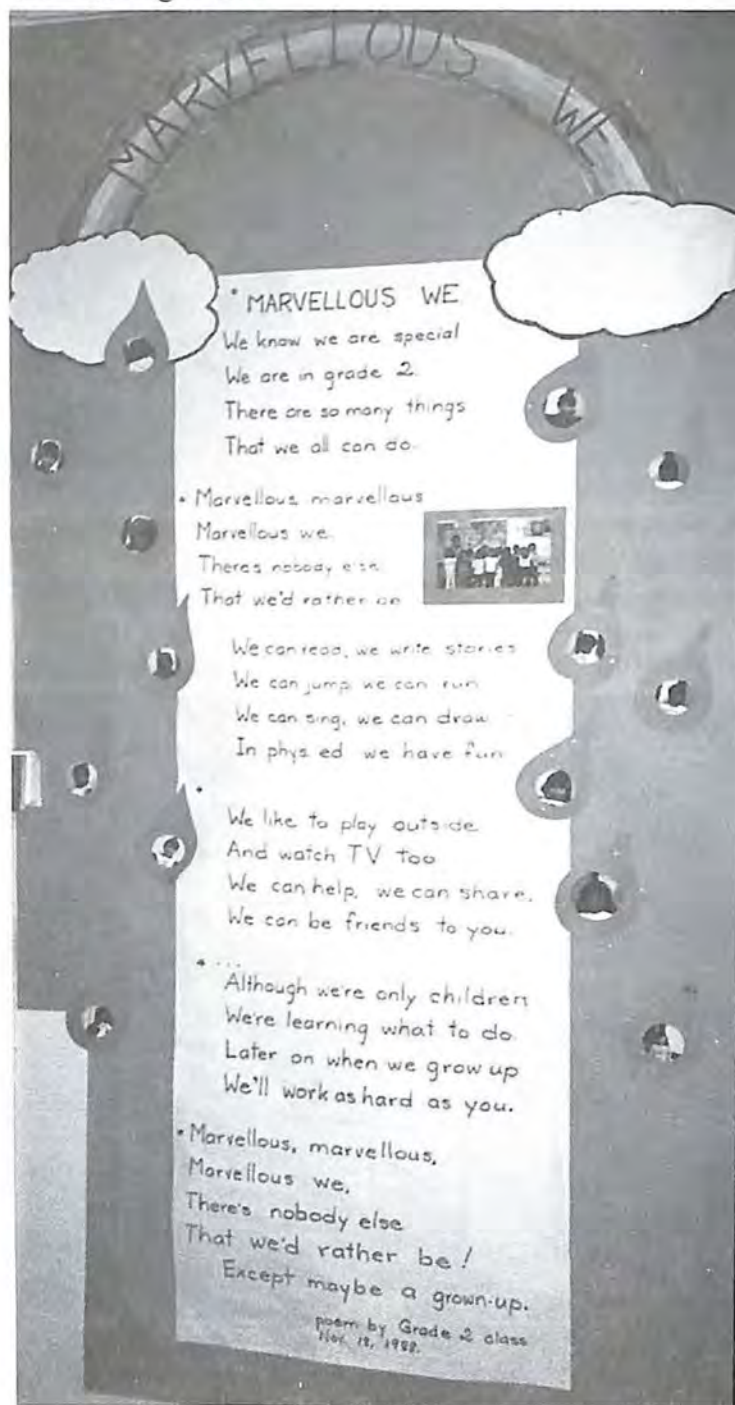 MARVELLOUS WE
• MARVELLOUS WE
We know we are special
We are in grade 2.
There are so many things
That we all can do.
• Marvellous, marvellous
Marvellous we.
There's nobody else
That we'd rather be
We can read, we write stories
We can jump, we can run
We can sing, we can draw
In phys ed we have fun
•
We like to play outside
And watch TV too
We can help, we can share,
We can be friends to you.
• ...
Although we're only children
We're learning what to do
Later on when we grow up
We'll work as hard as you.
• Marvellous, marvellous,
Marvellous we,
There's nobody else
That we'd rather be!
Except maybe a grown-up.
poem by Grade 2 class
Nov. 18, 1988.